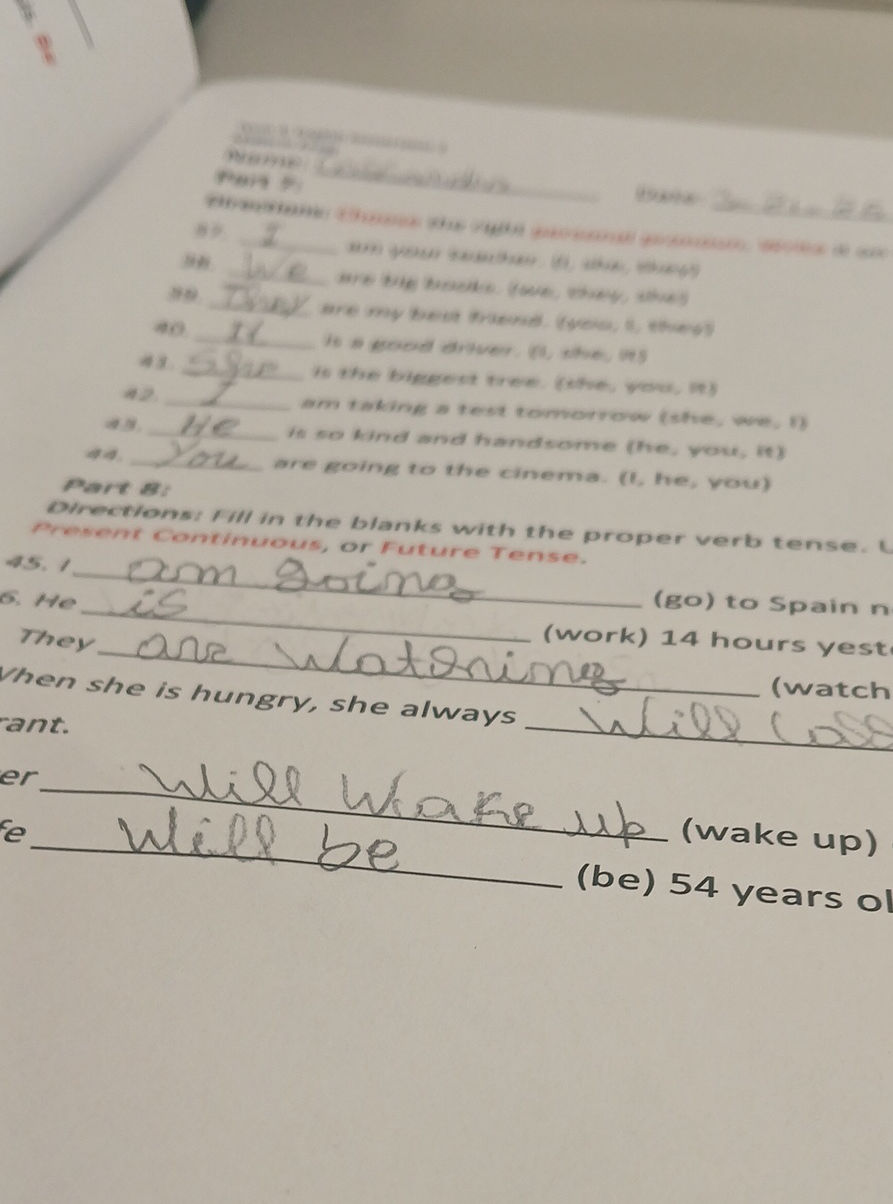 Name:
Part 7:
Directions: Choose the right personal pronoun.
37. I am your teacher. (I, she, they)
38. We are big books. (we, they, she)
39. They are my best friend. (you, I, they)
40. It is a good driver. (I, she, it)
41. She is the biggest tree. (she, you, it)
42. I am taking a test tomorrow (she, we, I)
43. He is so kind and handsome (he, you, it)
44. You are going to the cinema. (I, he, you)
Part 8:
Directions: Fill in the blanks with the proper verb tense.
Present Continuous, or Future Tense.
45. I am going (go) to Spain n
6. He is (work) 14 hours yest
They are watching (watch
When she is hungry, she always will
rant.
er will wake up (wake up)
fe will be (be) 54 years ol